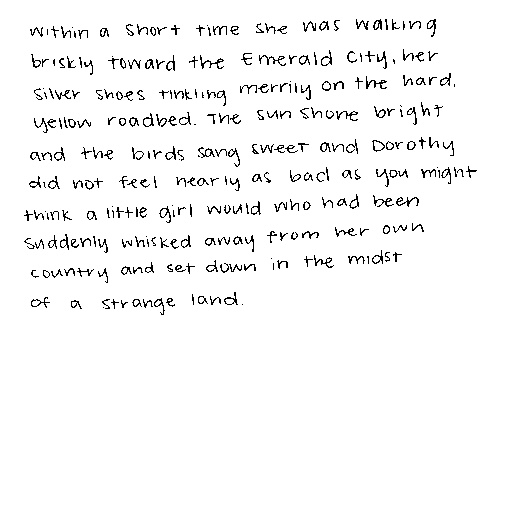 within a short time she was walking
briskly toward the Emerald City, her
silver shoes tinkling merrily on the hard,
yellow roadbed. The sun shone bright
and the birds sang sweet and Dorothy
did not feel nearly as bad as you might
think a little girl would who had been
suddenly whisked away from her own
country and set down in the midst
of a strange land.